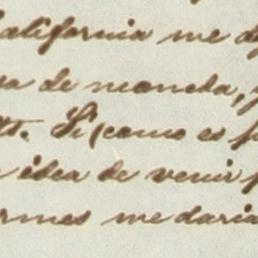 California me d
sa de moneda, y
tt. Si (como es f
idea de venir f
rmes me daria